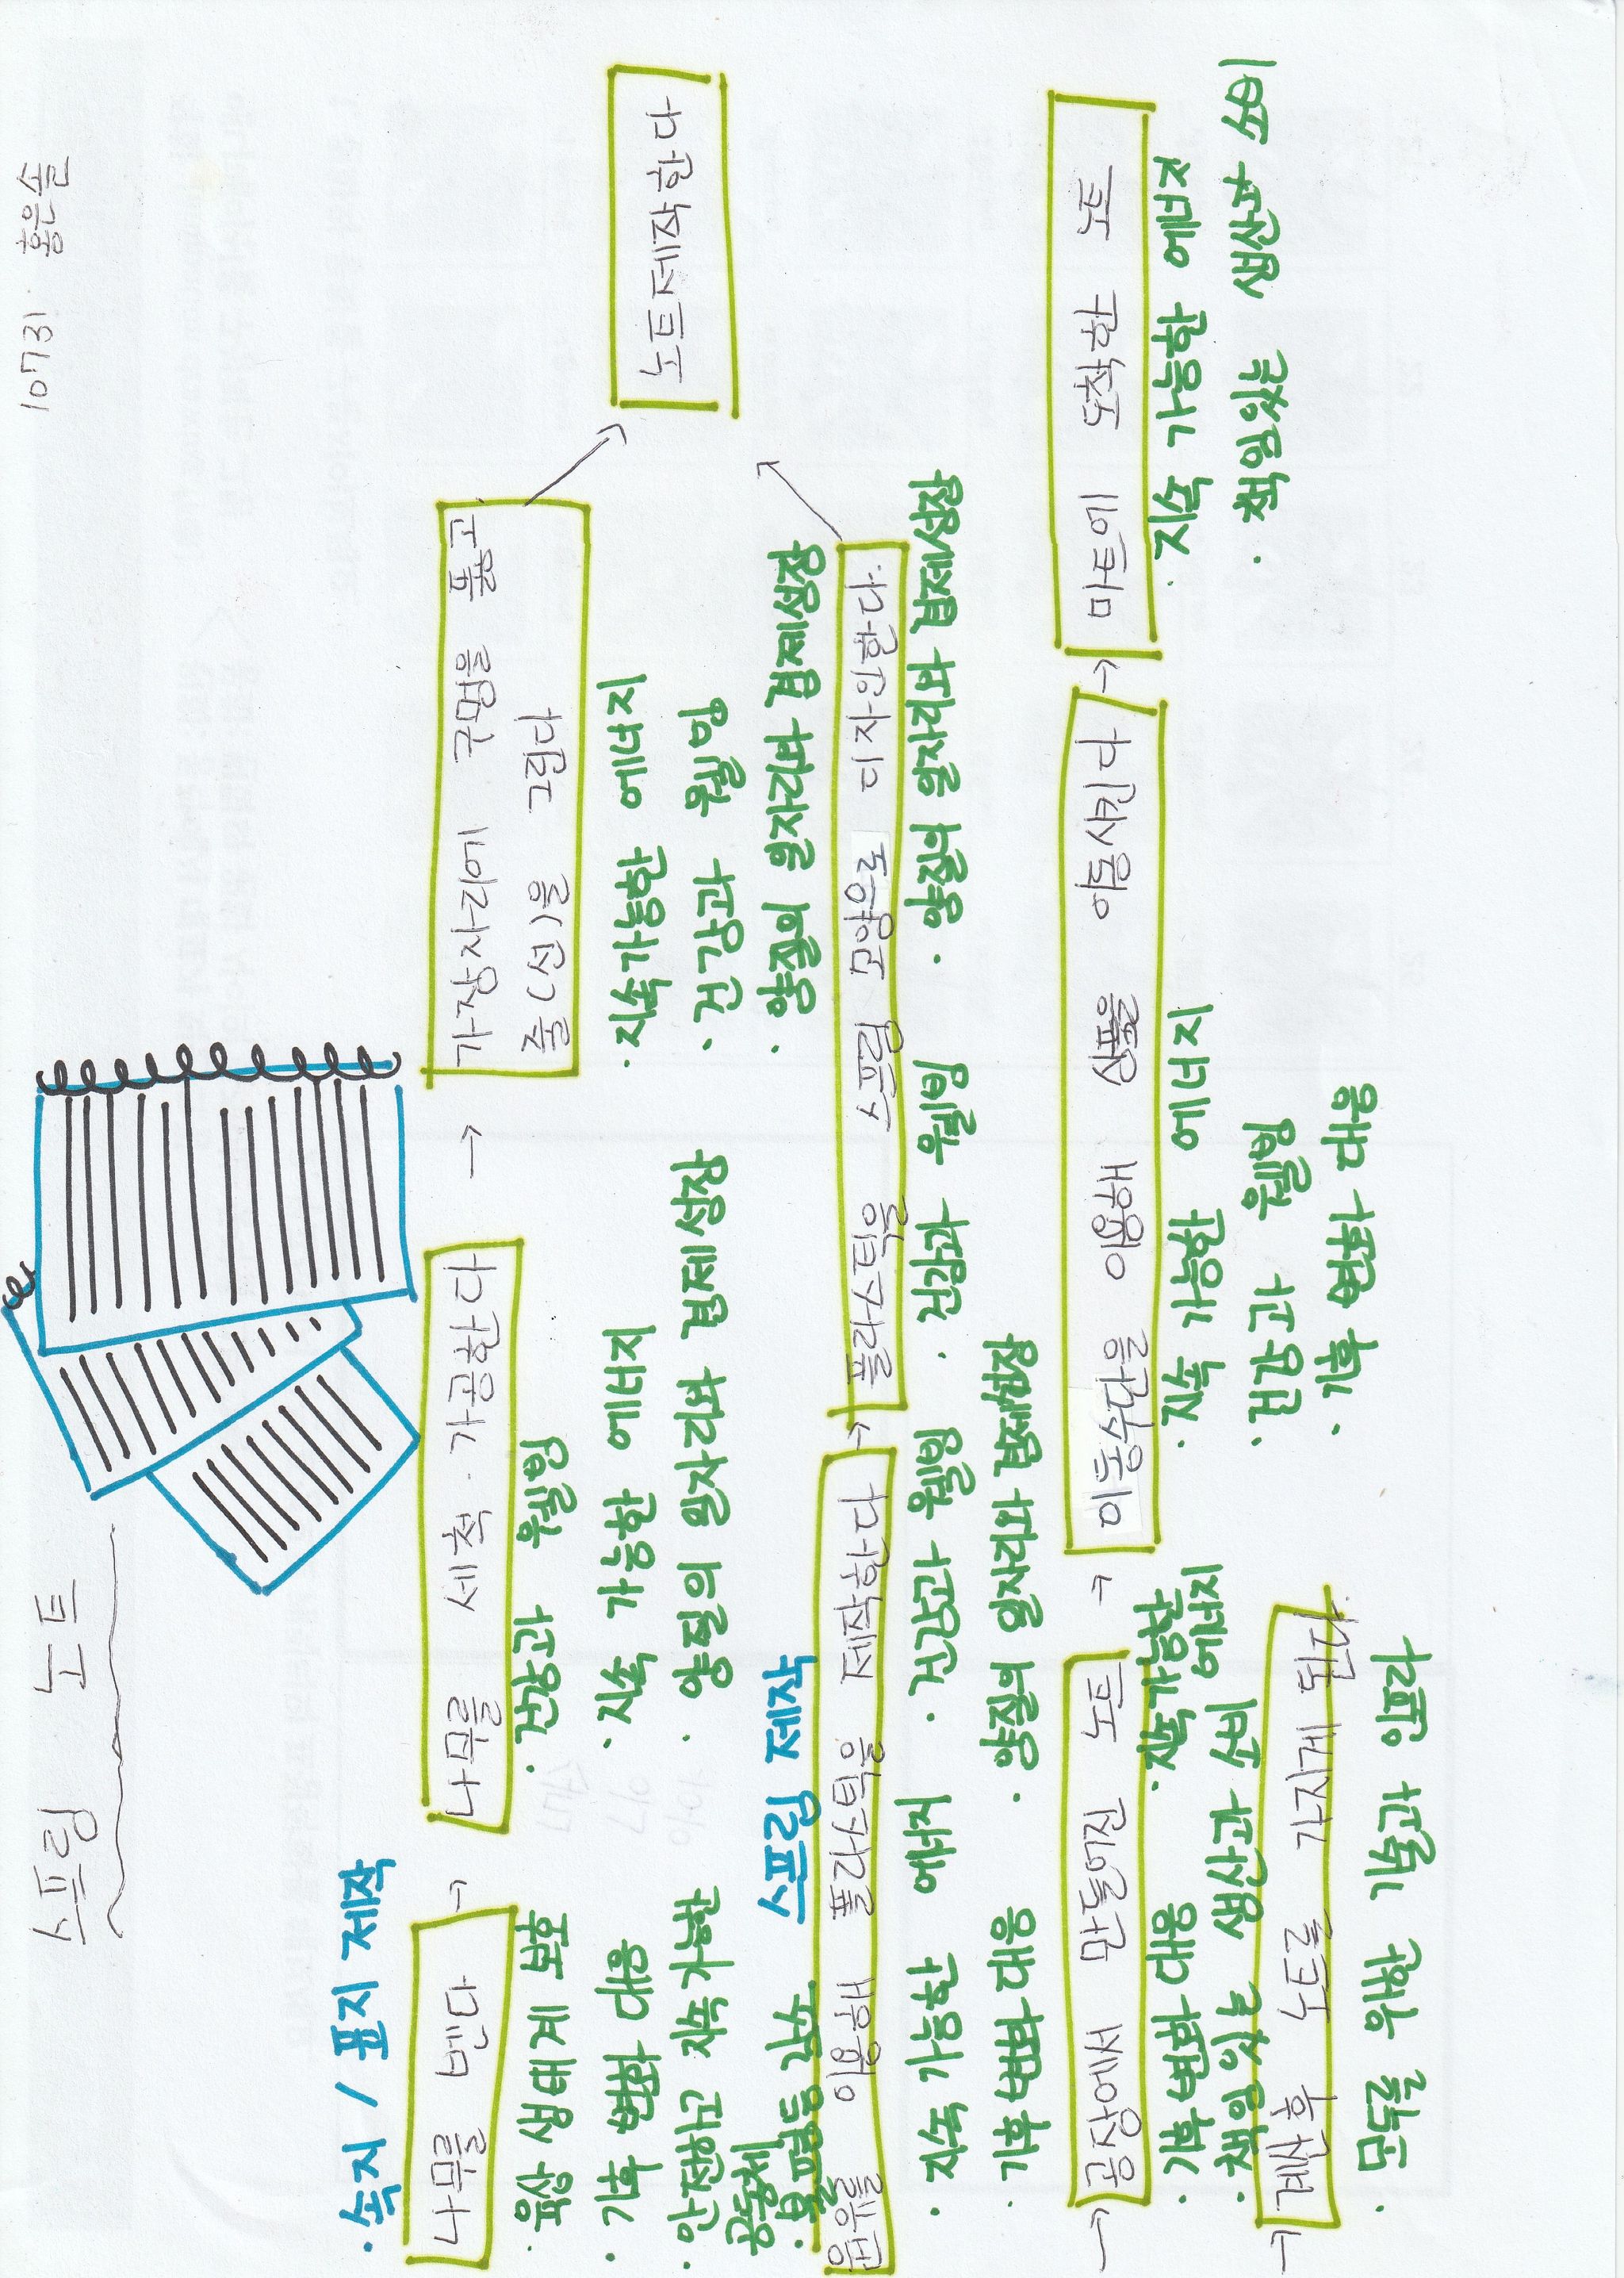 10731 홍은솔
스프링 노트
· 속지 / 표지 제작
나무를 벤다 →
육상 생태계 보호
· 기후 변화 대응
· 안전하고 지속가능한
공동체
· 불평등 감소
나무를 세척·가공한다 →
· 건강과 웰빙
· 지속 가능한 에너지
· 양질의 일자리와 경제성장
가장자리에 구멍을 뚫고
줄(선)을 그린다
· 지속가능한 에너지
· 건강과 웰빙
· 양질의 일자리와 경제성장
노트제작한다
스프링 제작
원유를 이용해 플라스틱을 제작한다 →
· 지속 가능한 에너지
· 기후변화 대응
· 건강과 웰빙
· 양질의 일자리와 경제성장
플라스틱을 스프링 모양으로 디자인한다.
· 건강과 웰빙
· 양질의 일자리와 경제성장
→ 공장에서 만들어진 노트 →
· 기후변화 대응
· 지속가능한
에너지
· 책임있는 생산과 소비
이동수단을 이용해 상품을 이동시킨다 →
· 지속 가능한 에너지
· 건강과 웰빙
· 기후 변화 대응
마트에 도착한 노트
· 지속 가능한 에너지
· 책임있는 생산과 소비
→ 계산후 노트를 가지게 된다.
· 모두를 위한 기술과 일한